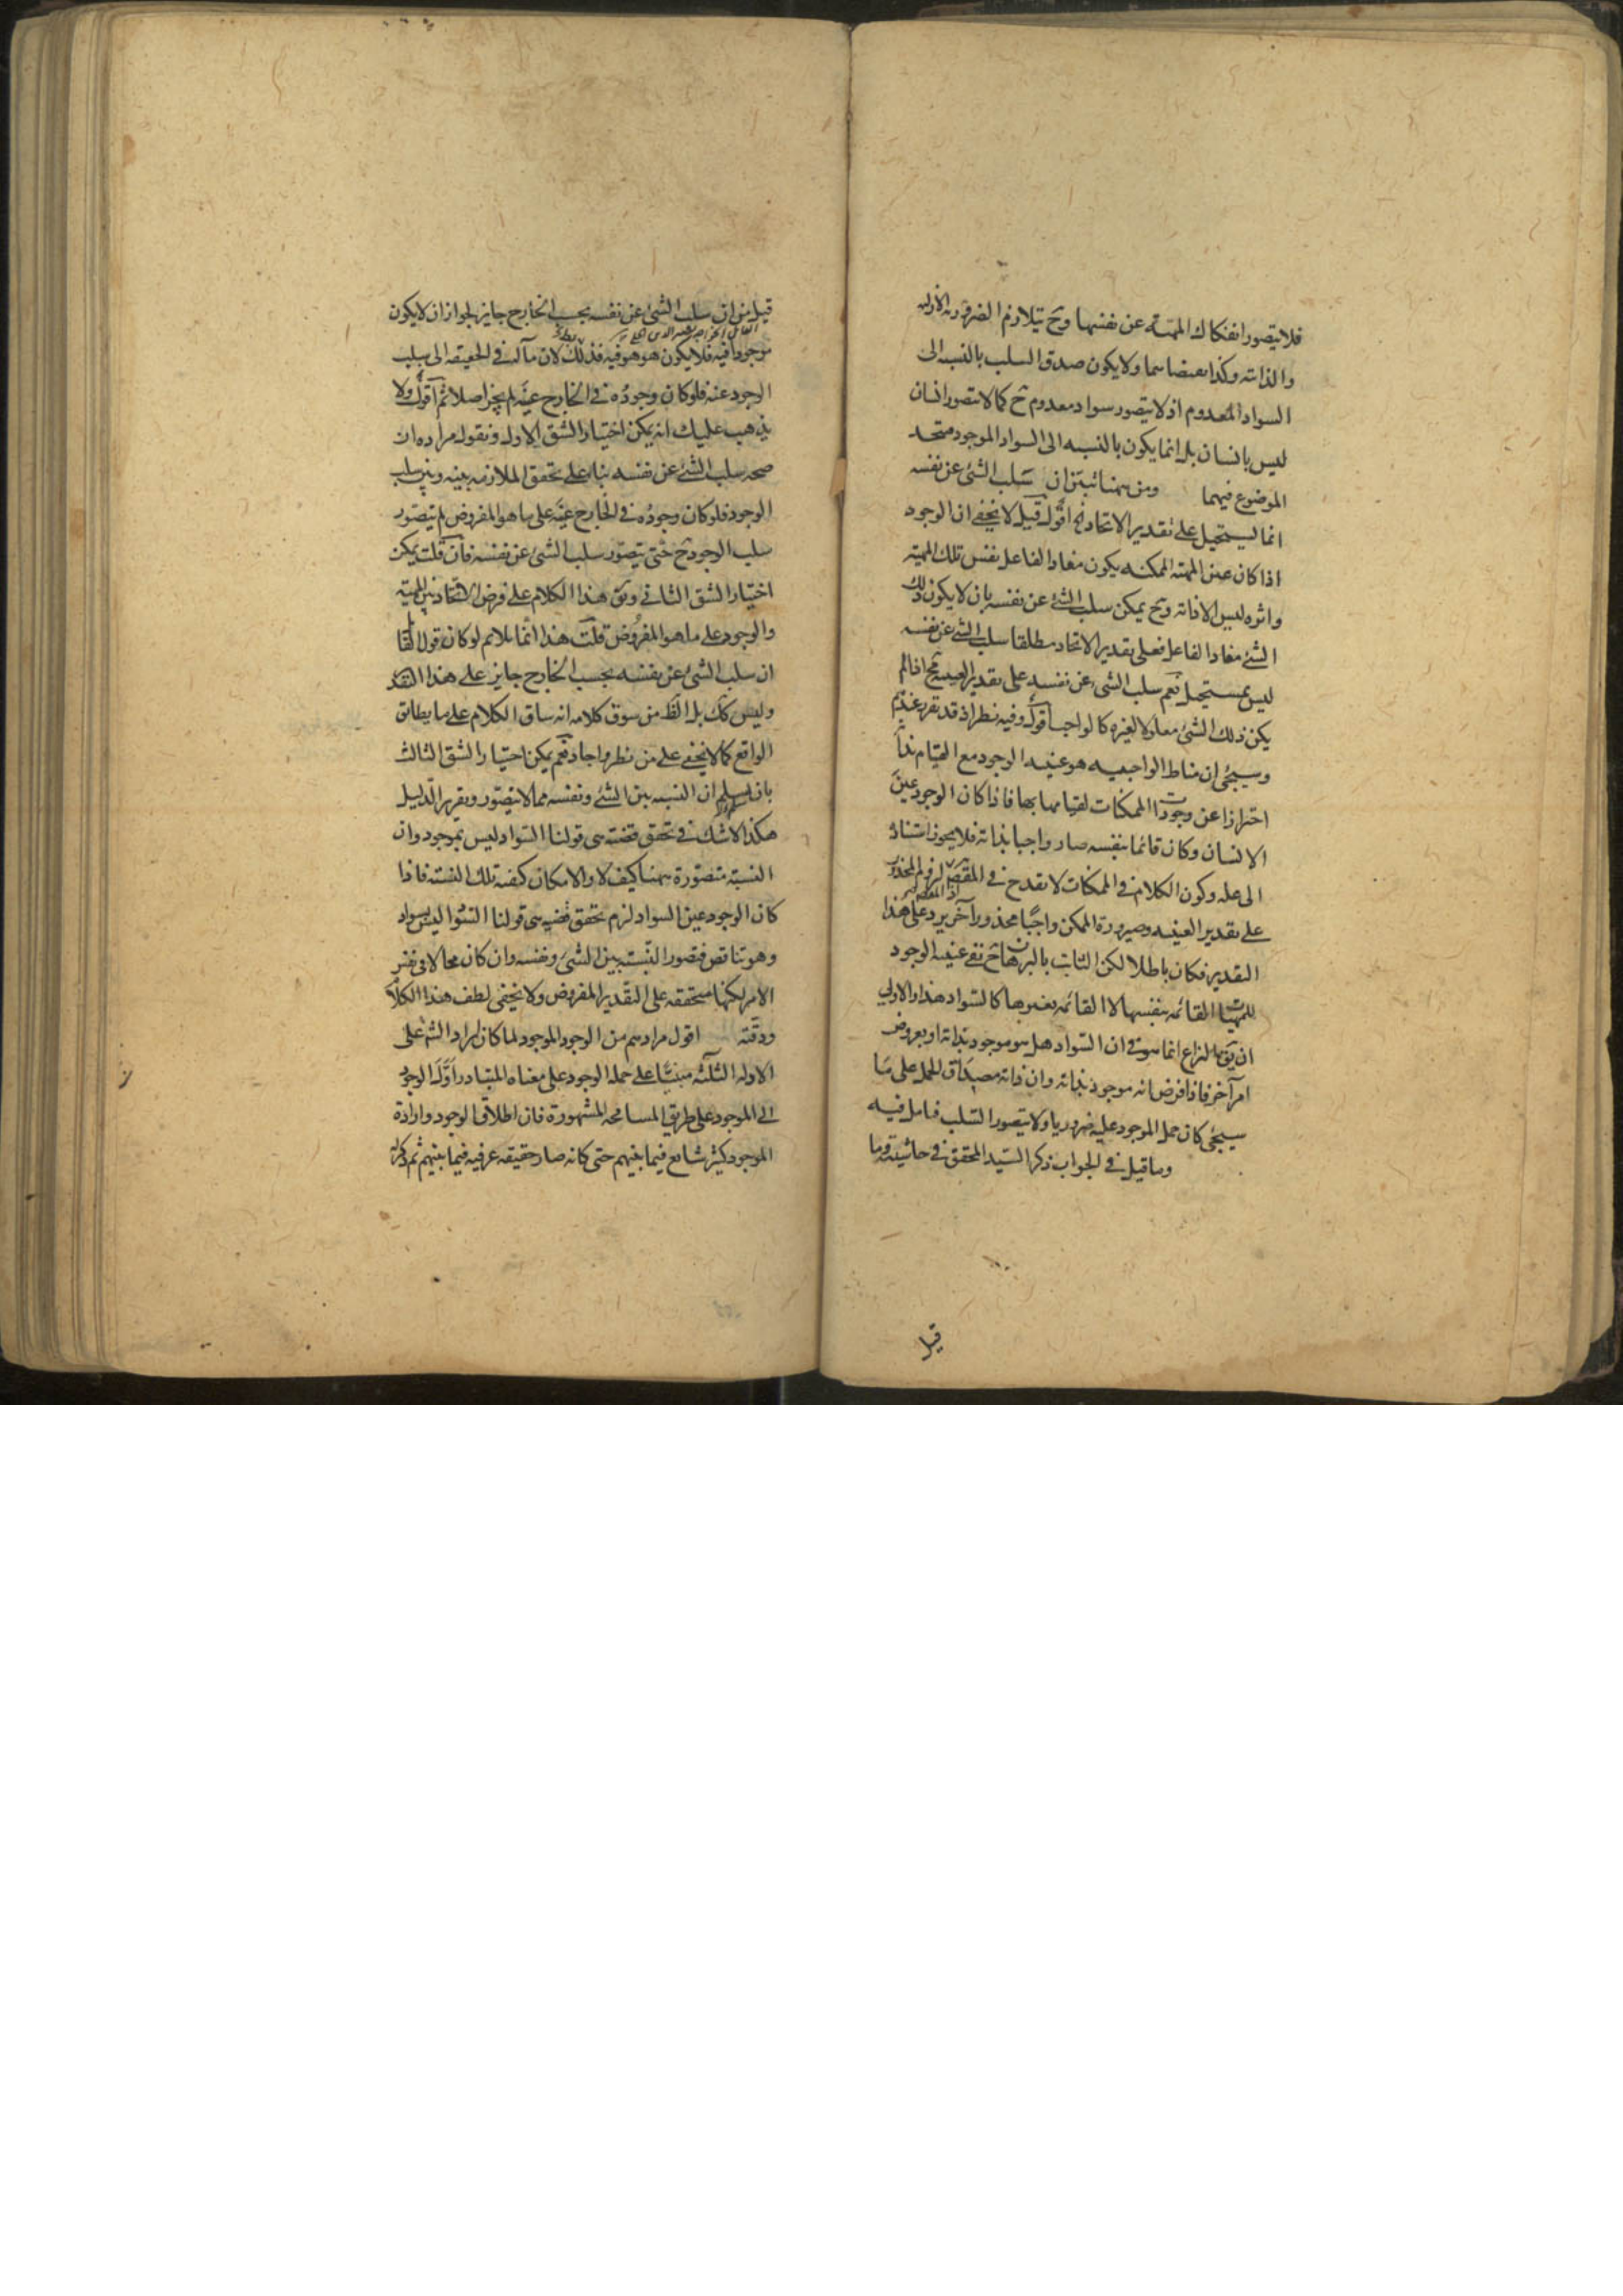 فلا يتصور انفكاك المهية عن نفسها وح يتلازم الضرورة الازلية
والذاتية وكذا نقيضاهما ولا يكون صدق السلب بالنسبه الى
السواد المعدوم اذ لا يتصور سواد معدوم ح كما لا يتصور انسان
ليس بانسان بل انما يكون بالنسبه الى السواد الموجود متحد
الموضوع فيهما ومن ههنا تبين ان سلب الشئ عن نفسه
انما يستحيل على تقدير الاتحاد اقول قيل لا يخفى ان الوجود
اذا كان عين المهية الممكنه يكون مفاد الفاعل نفس تلك المهية
واثره ليس الا ذاته وح يمكن سلب الشئ عن نفسه بان لا يكون ذلك
الشئ مفاد الفاعل فعلى تقدير الاتحاد مطلقا سلب الشئ عن نفسه
ليس بمستحيل نعم سلب الشئ عن نفسه على تقدير العينية اذا لم
يكن ذلك الشئ معلولا لغيره كالواجب اقول وفيه نظر اذ قد تقرر عندهم
وسيجئ ان مناط الواجبيه هو عينيه الوجود مع القيام بذاته
احترازا عن وجودات الممكنات لقيامها بها فاذا كان الوجود عين
الانسان وكان قائما بنفسه صار واجبا بذاته فلا يجوز استناده
الى علة وكون الكلام في الممكنات لا يقدح في المقصود لزوم المحذور
اذ المقصود
على تقدير العينيه وصيرورة الممكن واجبا محذور آخر يرد على هذا
التقدير فكان باطلا لكن الثابت بالبرهان ح نفى عينيه الوجود
للمهيات القائمه بنفسها لا القائمه بغيرها كالسواد هذا والاولى
ان يق النزاع انما هو في ان السواد هل هو موجود بذاته او بعروض
امر آخر فاذا فرض انه موجود بذاته وان ذاته مصداق للحمل على ما
سيجئ كان حمل الموجود عليه ضروريا ولا يتصور السلب فتامل فيه
وما قيل في الجواب ذكر السيد المحقق في حاشيته وما
قيل
قيل من ان سلب الشئ عن نفسه بحسب الخارج جايز لجواز ان لا يكون
موجودا فيه فلا يكون هو هو فيه فذلك لان مآله في الحقيقه الى سلب
الوجود عنه فلو كان وجوده في الخارج عينه لم يجز اصلا ثم اقول ولا
يذهب عليك انه يمكن اختيار الشق الاول ونقول مراده ان
صحه سلب الشئ عن نفسه بناء على تحقق الملازمه بينه وبين سلب
الوجود فلو كان وجوده في الخارج عينه على ما هو المفروض لم يتصور
سلب الوجود ح حتى يتصور سلب الشئ عن نفسه فان قلت يمكن
اختيار الشق الثاني وبنى هذا الكلام على فرض الاتحاد بين المهية
والوجود على ما هو المفروض قلت هذا انما يلايم لو كان قول القائل
ان سلب الشئ عن نفسه بحسب الخارج جايز على هذا التقدير
وليس كك بل الظ من سوق كلامه انه ساق الكلام على ما يطابق
الواقع كما لا يخفى على من نظر واجاد نعم يمكن اختيار الشق الثالث
بان يسلم ان النسبه بين الشئ ونفسه مما لا يتصور ويقرر الدليل
هكذا لا شك في تحقق قضية هى قولنا السواد ليس بموجود وان
النسبة متصورة ههنا كيف لا والامكان كيفية تلك النسبة فاذا
كان الوجود عين السواد لزم تحقق قضيه هى قولنا السواد ليس بسواد
وهو تناقض فتصور النسبة بين الشئ ونفسه وان كان محالا في نفس
الامر لكنها متحققه على التقدير المفروض ولا يخفى لطف هذا الكلام
ودقته اقول مرادهم من الوجود الموجود لما كان ايراد الشم على
الاوله الثلثه مبنيا على حمل الوجود على معناه المتبادر اول الوجود
الى الموجود على طريق المسامحه المشهورة فان اطلاق الوجود وارادة
الموجود كثير شايع فيما بينهم حتى كانه صار حقيقه عرفيه فيما بينهم ثم ذكر